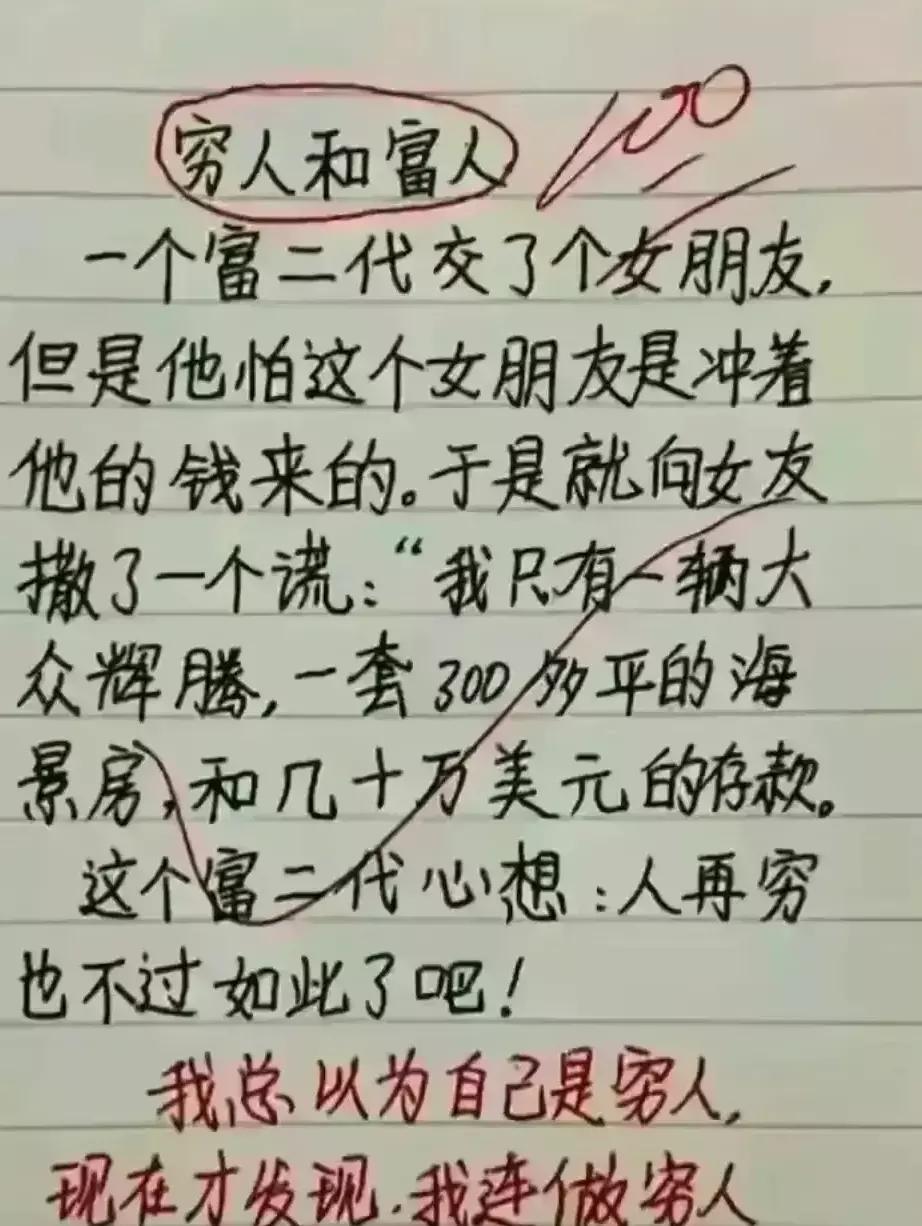 穷人和富人
100
一个富二代交了个女朋友,
但是他怕这个女朋友是冲着
他的钱来的。于是就向女友
撒了一个谎:“我只有一辆大
众辉腾,一套300多平的海
景房,和几十万美元的存款。
这个富二代心想:人再穷
也不过如此了吧!
我总以为自己是穷人,
现在才发现.我连做穷人